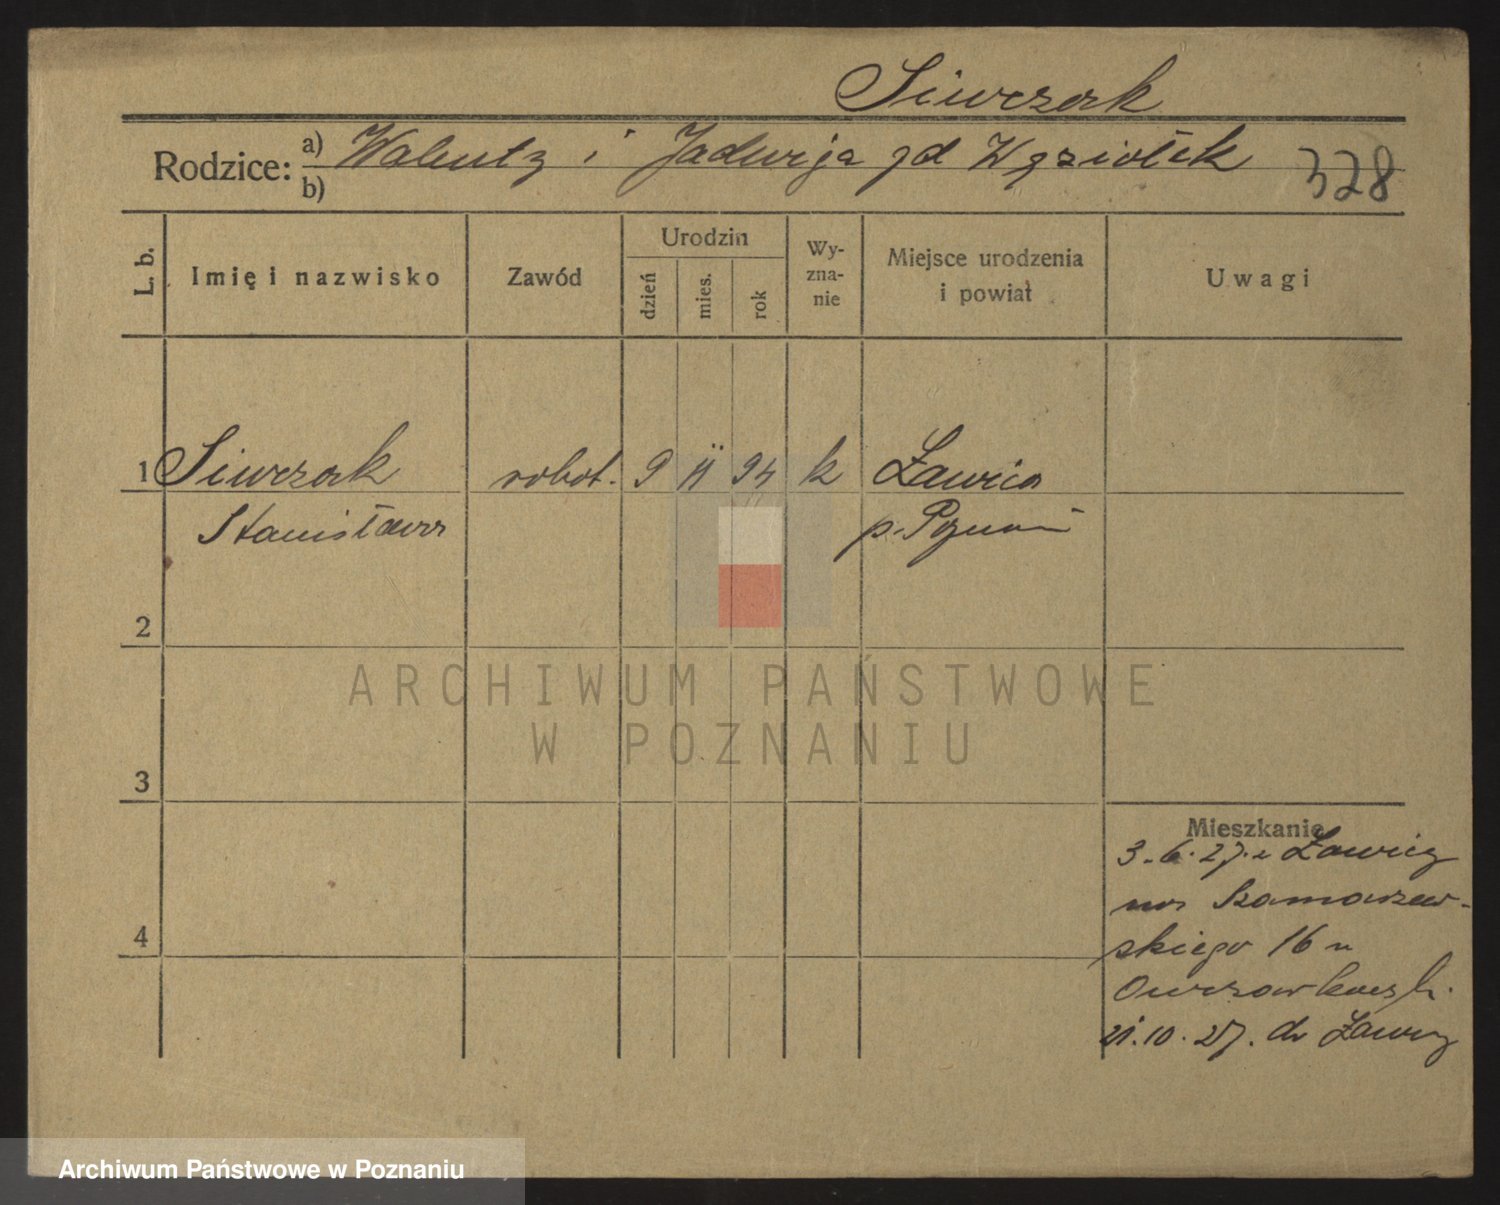 Siwczak
Rodzice: a) Walenty i Jadwiga zd Węziołek
b)
328
L. b.
Imię i nazwisko
Zawód
Urodzin
dzień
mies.
rok
Wy-
zna-
nie
Miejsce urodzenia
i powiat
Uwagi
1 Siwczak robot. 9 II 94 k Ławica
Stanisława p. Poznań
2
ARCHIWUM PAŃSTWOWE
W POZNANIU
3
Mieszkanie
3.6.27. z Ławicy
na Szamarzew-
skiego 16 u
4
21.10.27. do Ławicy
Archiwum Państwowe w Poznaniu